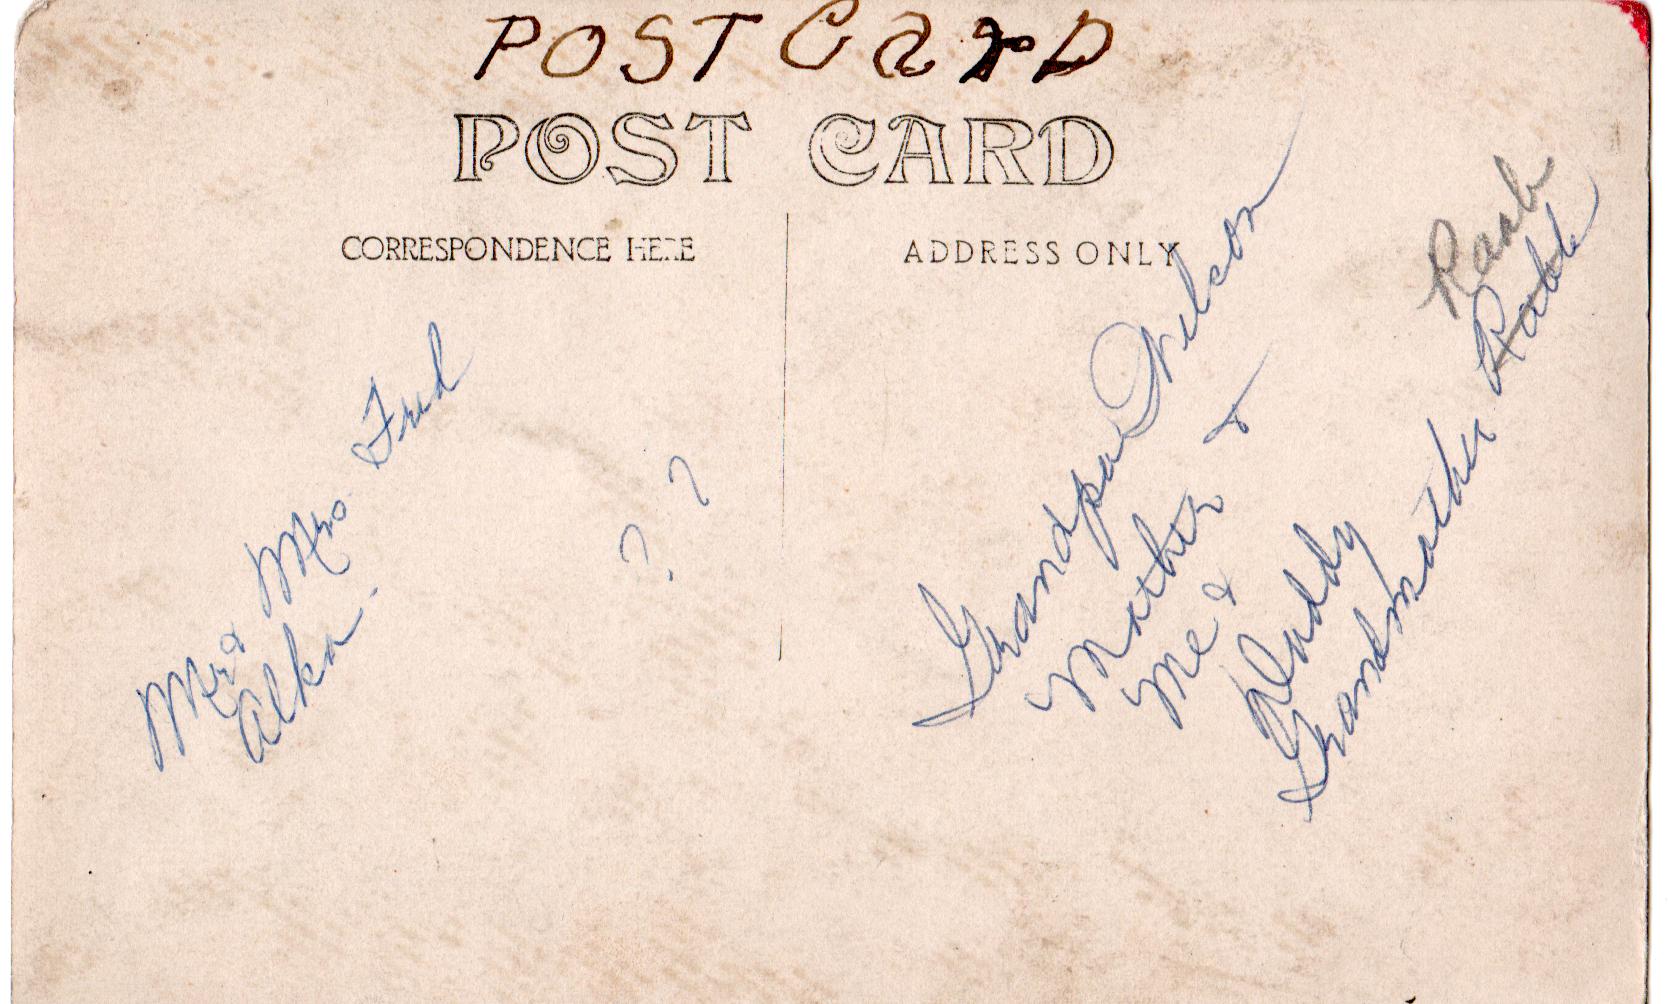 POST CARD
POST CARD
CORRESPONDENCE HERE
ADDRESS ONLY
Mr & Mrs. Fred
Alka.
? ?
Grandpa Nelson
Mother &
Me &
Daddy
Grandmother Rabb
Raab